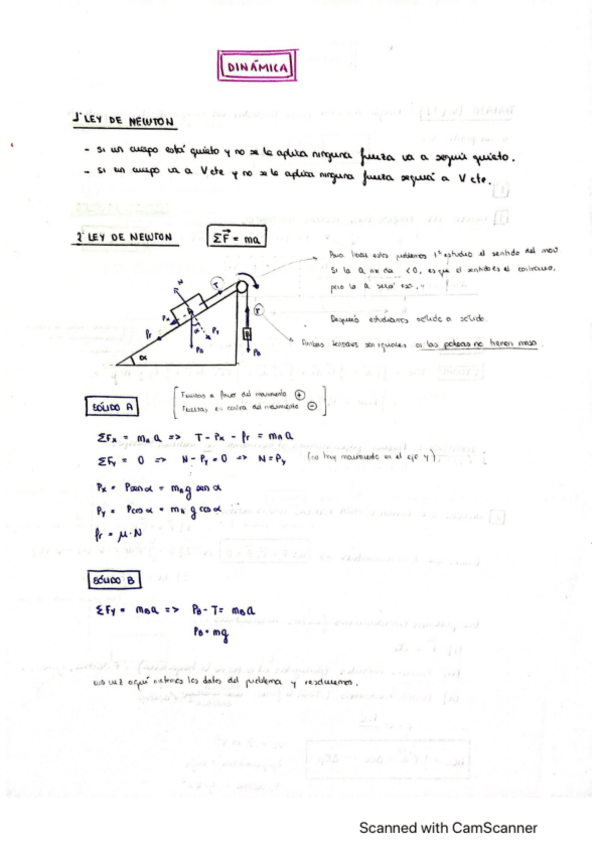 DINÁMICA
1ª LEY DE NEWTON
- Si un cuerpo está quieto y no se le aplica ninguna fuerza va a seguir quieto.
- Si un cuerpo va a V cte y no se le aplica ninguna fuerza seguirá a V cte.
2ª LEY DE NEWTON
ΣF⃗ = ma
Para todos estos problemas 1º estudio el sentido del mov.
Si la a me da < 0, es que el sentido es el contrario,
pero la a será esa.
Después estudiamos sólido a sólido.
Ambas tensiones son iguales si las poleas no tienen masa.
N
T
Px
Py
fr
α
PA
T
B
PB
SÓLIDO A
Fuerzas a favor del movimiento +
Fuerzas en contra del movimiento -
ΣFx = mA a => T - Px - fr = mA a
ΣFy = 0 => N - Py = 0 => N = Py (no hay movimiento en el eje y)
Px = P sen α = mA g sen α
Py = P cos α = mA g cos α
fr = μ · N
SÓLIDO B
ΣFy = mB a => PB - T = mB a
PB = mg
una vez aquí metemos los datos del problema y resolvemos.
Scanned with CamScanner